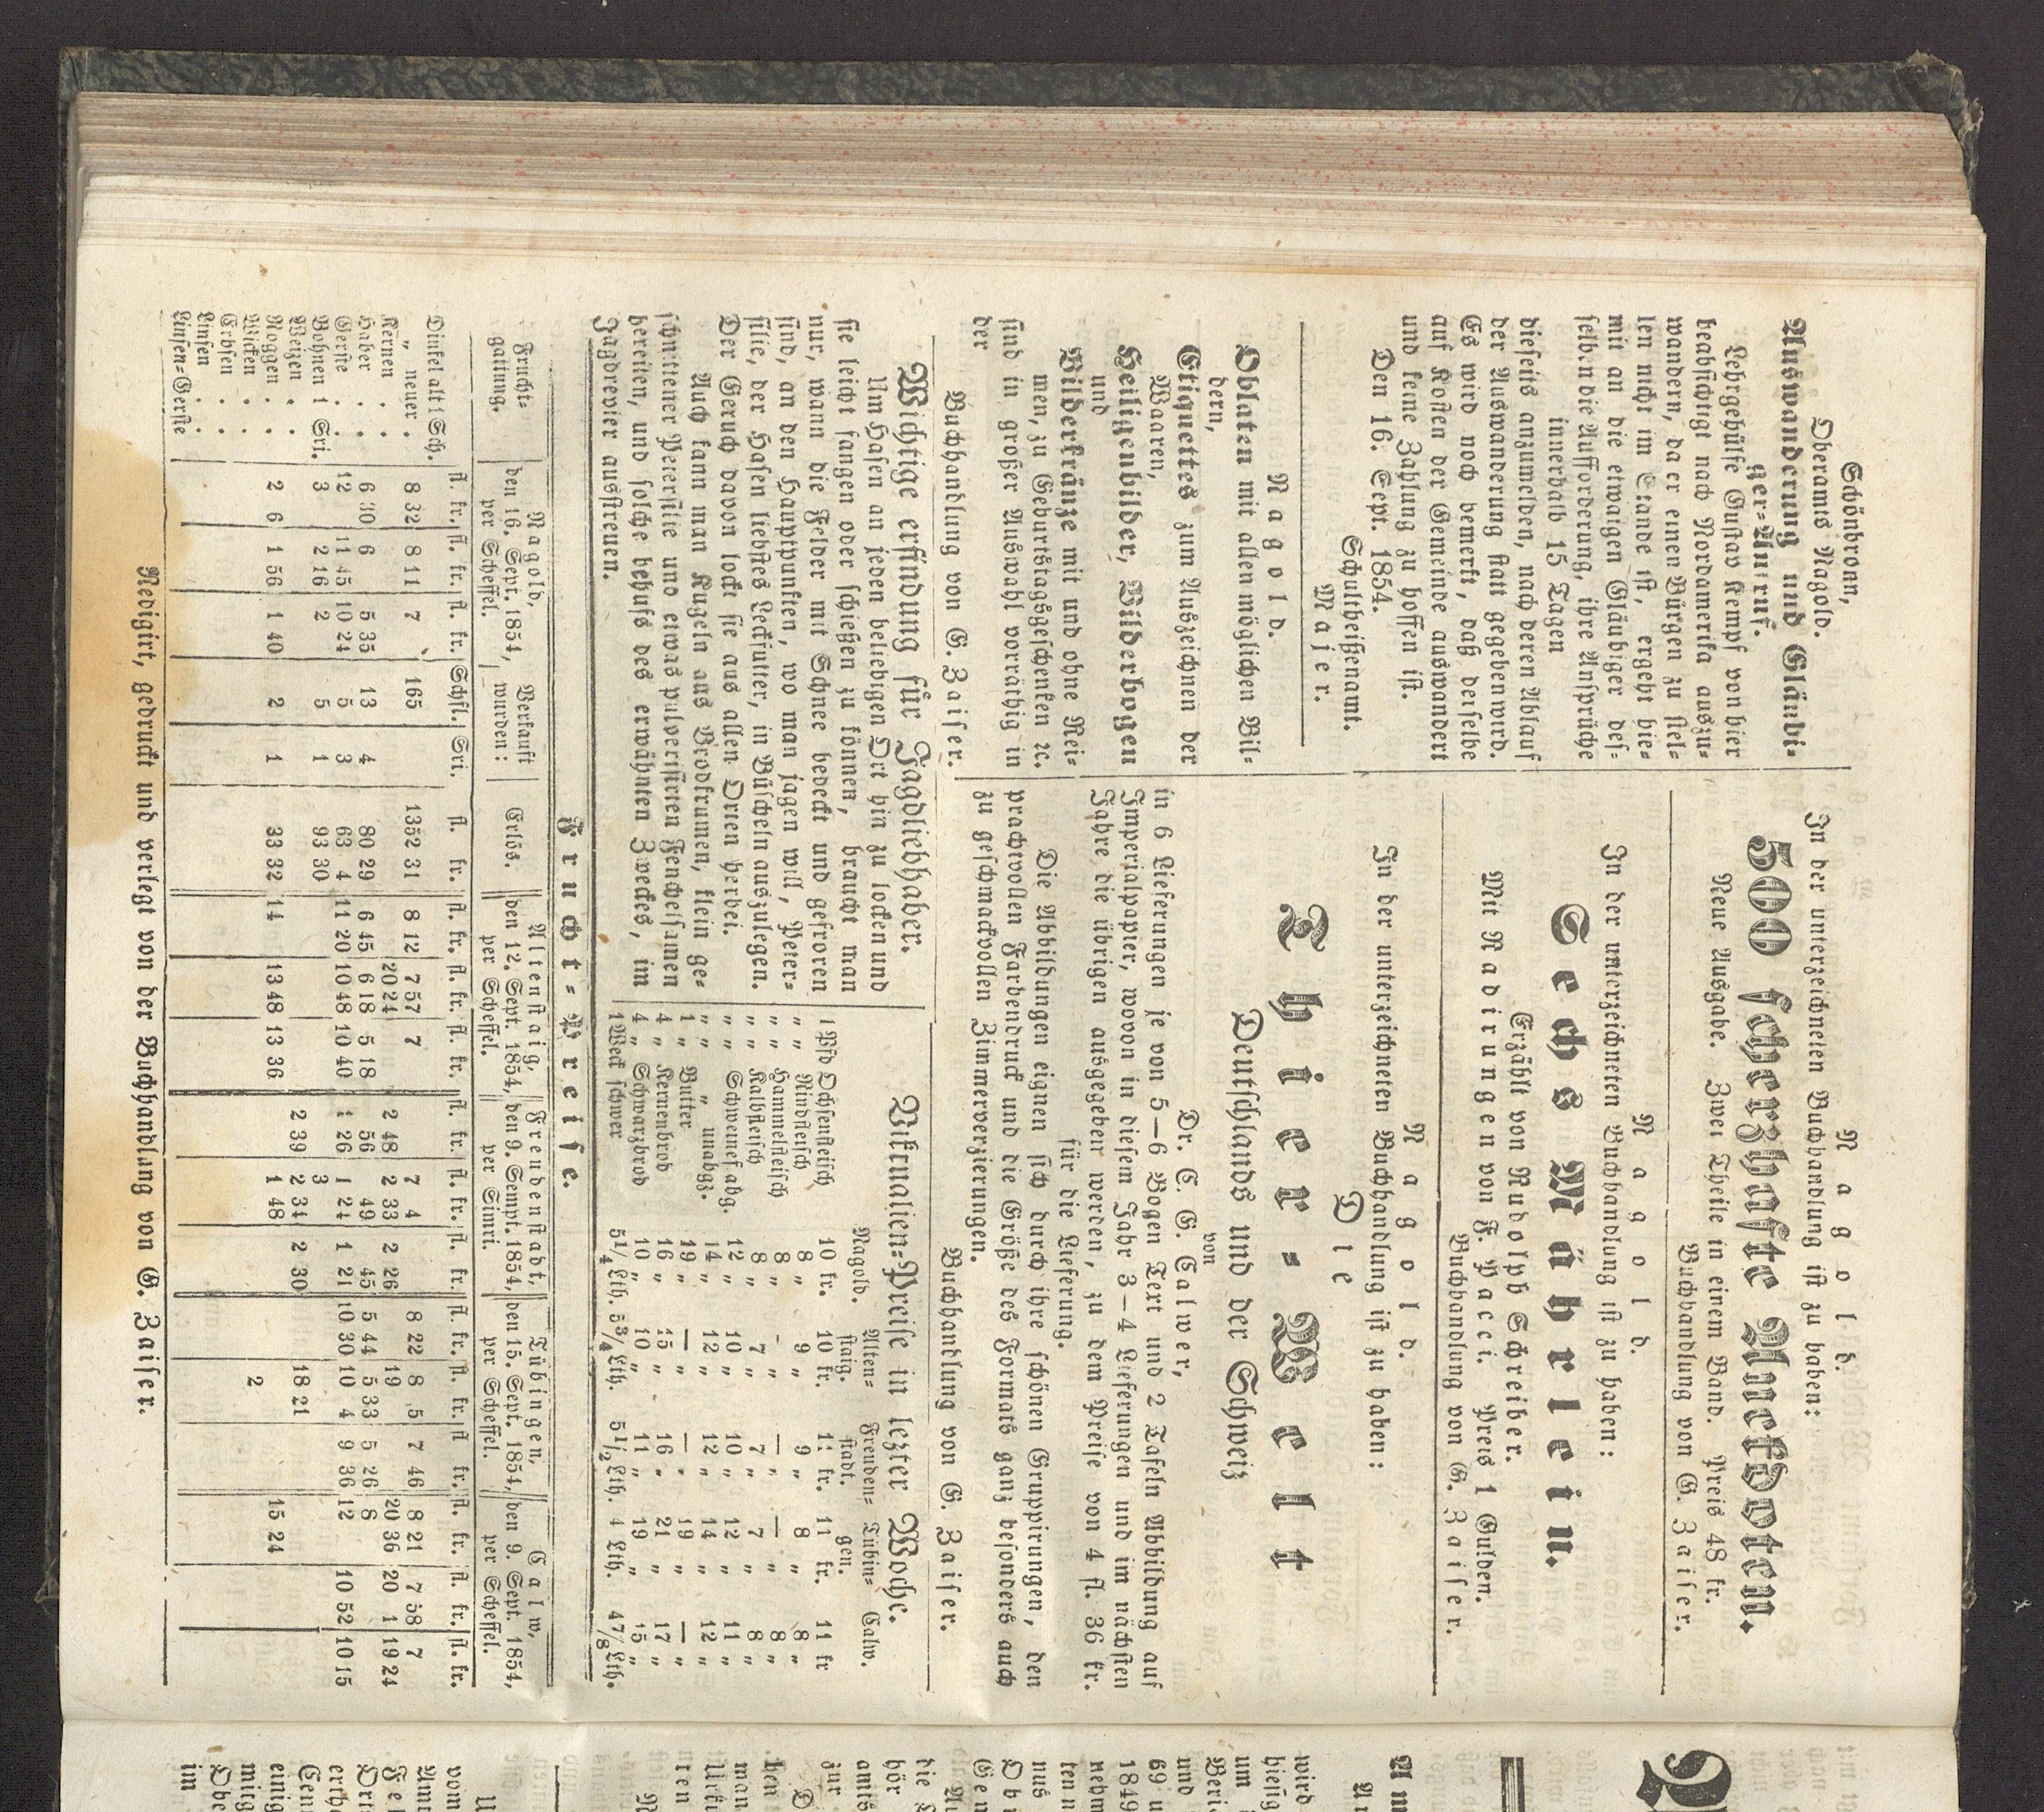 Schönbronn,
Oberamts Nagold.
Auswanderung und Gläubi-
ger-Aufruf.
Lehrgehülfe Gustav Kempf von hier
beabsichtigt nach Nordamerika auszu-
wandern, da er einen Bürgen zu stel-
len nicht im Stande ist, ergeht hie-
mit an die etwaigen Gläubiger des-
selben die Aufforderung, ihre Ansprüche
innerhalb 15 Tagen
dieseits anzumelden, nach deren Ablauf
der Auswanderung statt gegeben wird.
Es wird noch bemerkt, daß derselbe
auf Kosten der Gemeinde auswandert
und keine Zahlung zu hoffen ist.
Den 16. Sept. 1854.
Schultheißenamt.
Majer.
Nagold.
Oblaten mit allen möglichen Bil-
dern,
Etiquettes zum Auszeichnen der
Waaren,
Heiligenbilder, Bilderbogen
und
Bilderkränze mit und ohne Rei-
men, zu Geburtstagsgeschenken ꝛc.
sind in großer Auswahl vorräthig in
der
Buchhandlung von G. Zaiser.
Nagold.
In der unterzeichneten Buchhandlung ist zu haben:
500 scherzhafte Anekdoten.
Neue Ausgabe. Zwei Theile in einem Band. Preis 48 kr.
Buchhandlung von G. Zaiser.
Nagold.
In der unterzeichneten Buchhandlung ist zu haben:
Sechs Mährlein.
Erzählt von Rudolph Schreiber.
Mit Radirungen von F. Pacci. Preis 1 Gulden.
Buchhandlung von G. Zaiser.
Nagold.
In der unterzeichneten Buchhandlung ist zu haben:
Die
Thier-Welt
Deutschlands und der Schweiz
von
Dr. C. G. Calwer,
in 6 Lieferungen je von 5—6 Bogen Text und 2 Tafeln Abbildung auf
Imperialpapier, wovon in diesem Jahr 3—4 Lieferungen und im nächsten
Jahre die übrigen ausgegeben werden, zu dem Preise von 4 fl. 36 kr.
für die Lieferung.
Die Abbildungen eignen sich durch ihre schönen Gruppirungen, den
prachtvollen Farbendruck und die Größe des Formats ganz besonders auch
zu geschmackvollen Zimmerverzierungen.
Buchhandlung von G. Zaiser.
Wichtige erfindung für Jagdliebhaber.
Um Hasen an jeden beliebigen Ort hin zu locken und
sie leicht fangen oder schießen zu können, braucht man
nur, wann die Felder mit Schnee bedeckt und gefroren
sind, an den Hauptpunkten, wo man jagen will, Peter-
silie, der Hasen liebstes Leckfutter, in Büscheln auszulegen.
Der Geruch davon lockt sie aus allen Orten herbei.
Auch kann man Kugeln aus Brodkrumen, klein ge-
schnittener Petersilie und etwas pulverisirten Fenchelsamen
bereiten, und solche behufs des erwähnten Zweckes, im
Jagdrevier ausstreuen.
Viktualien-Preise in lezter Woche.
Nagold. Alten-staig. Freuden-stadt. Tübin-gen. Calw.
1 Pfd Ochsenfleisch 10 kr. 10 kr. 11 kr. 11 kr. 11 kr
„ „ Rindfleisch 8 „ 9 „ 9 „ 8 „ 8 „
„ „ Hammelfleisch 8 „ - „ — „ — „ 8 „
„ „ Kalbfleisch 8 „ 7 „ 7 „ 7 „ 8 „
„ „ Schweinef. abg. 12 „ 10 „ 10 „ 12 „ 11 „
„ „ „ unabgz. 14 „ 12 „ 12 „ 14 „ 12 „
1 „ Butter 19 „ — „ — „ 19 „ — „
4 „ Kernenbrod 16 „ 15 „ 16 „ 21 „ 17 „
4 „ Schwarzbrod 10 „ 10 „ 11 „ 19 „ 15 „
1 Weck schwer 5¼ Lth. 5¾ Lth. 5½ Lth. 4 Lth. 4⅞ Lth.
Frucht-Preise.
Frucht-gattung. Nagold, den 16. Sept. 1854, per Scheffel. Verkauft wurden: Erlös. Altenstaig, den 12. Sept. 1854, per Scheffel. Freudenstadt, den 9. Sempt. 1854, per Simri. Tübingen, den 15. Sept. 1854, per Scheffel. Calw, den 9. Sept. 1854, per Scheffel.
fl. kr. fl. kr. fl. kr. Schfl. Sri. fl. kr. fl. kr. fl. kr. fl. kr. fl. kr. fl. kr. fl. kr. fl. kr. fl. kr. fl kr. fl. kr. fl. kr. fl. kr.
Dinkel alt 1 Sch.
„ neuer . 8 32 8 11 7 165 1352 31 8 12 7 57 7 7 4 8 22 8 5 7 46 8 21 7 58 7
Kernen . . 20 24 2 48 2 33 2 26 19 20 36 20 1 19 24
Haber . . 6 30 6 5 35 13 4 80 29 6 45 6 18 5 18 56 49 45 5 44 5 33 5 26 8
Gerste . . 12 11 45 10 24 5 3 63 4 11 20 10 48 10 40 1 26 1 24 1 21 10 30 10 4 9 36 12 10 52 10 15
Bohnen 1 Sri. 3 2 16 2 5 1 93 30 3
Weizen . . 2 39 2 34 2 30 18 21
Roggen . . 2 6 1 56 1 40 2 1 33 32 14 13 48 13 36 1 48 15 24
Wicken . . 2
Erbsen . .
Linsen . .
Linsen-Gerste
Redigirt, gedruckt und verlegt von der Buchhandlung von G. Zaiser.